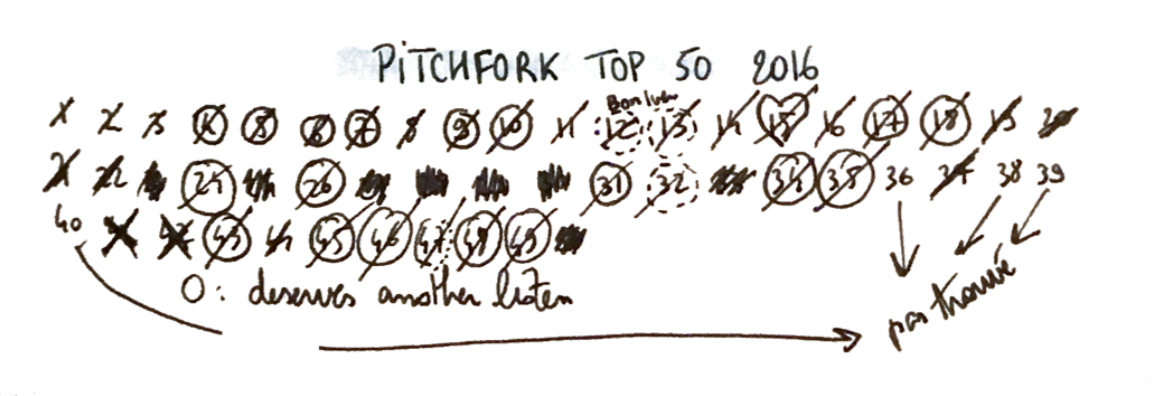 PiTCHFORK TOP 50 2016
Bon Iver
1 2 3 4 5 6 7 8 9 10 11 12 13 14 15 16 17 18 19 20
21 22 24 26 31 32 34 35 36 37 38 39
40 41 42 43 44 45 46 47 48 49
O: deserves another listen
pas trouvé